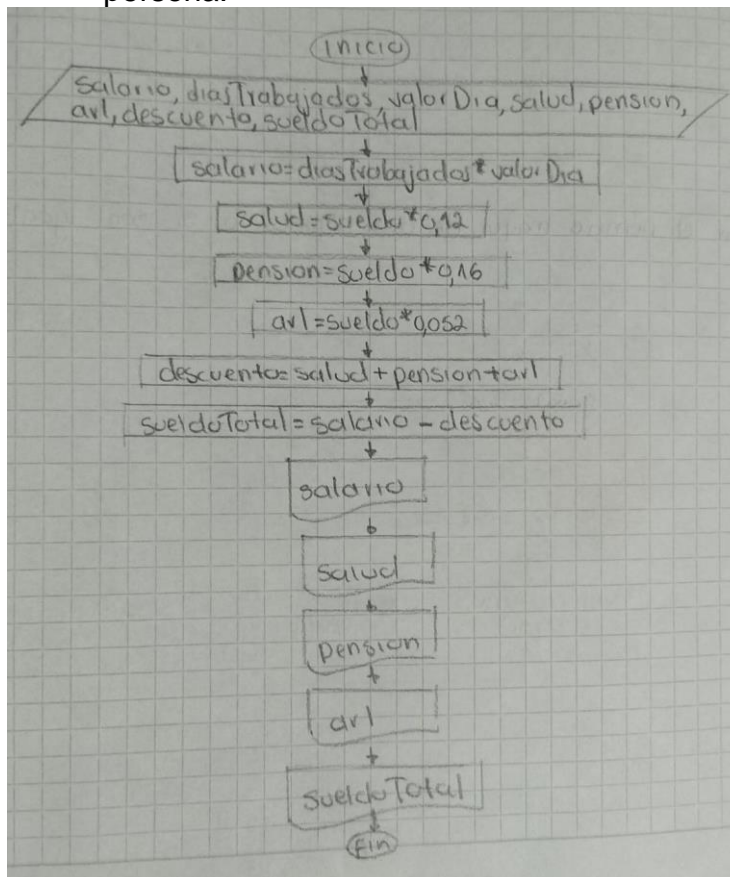 personal
Inicio
salario, diasTrabajados, valorDia, salud, pension,
arl, descuento, sueldoTotal
salario=diasTrabajados*valorDia
salud=sueldo*0,12
pension=sueldo*0,16
arl=sueldo*0,052
descuento=salud+pension+arl
sueldoTotal=salario-descuento
salario
salud
pension
arl
sueldoTotal
Fin